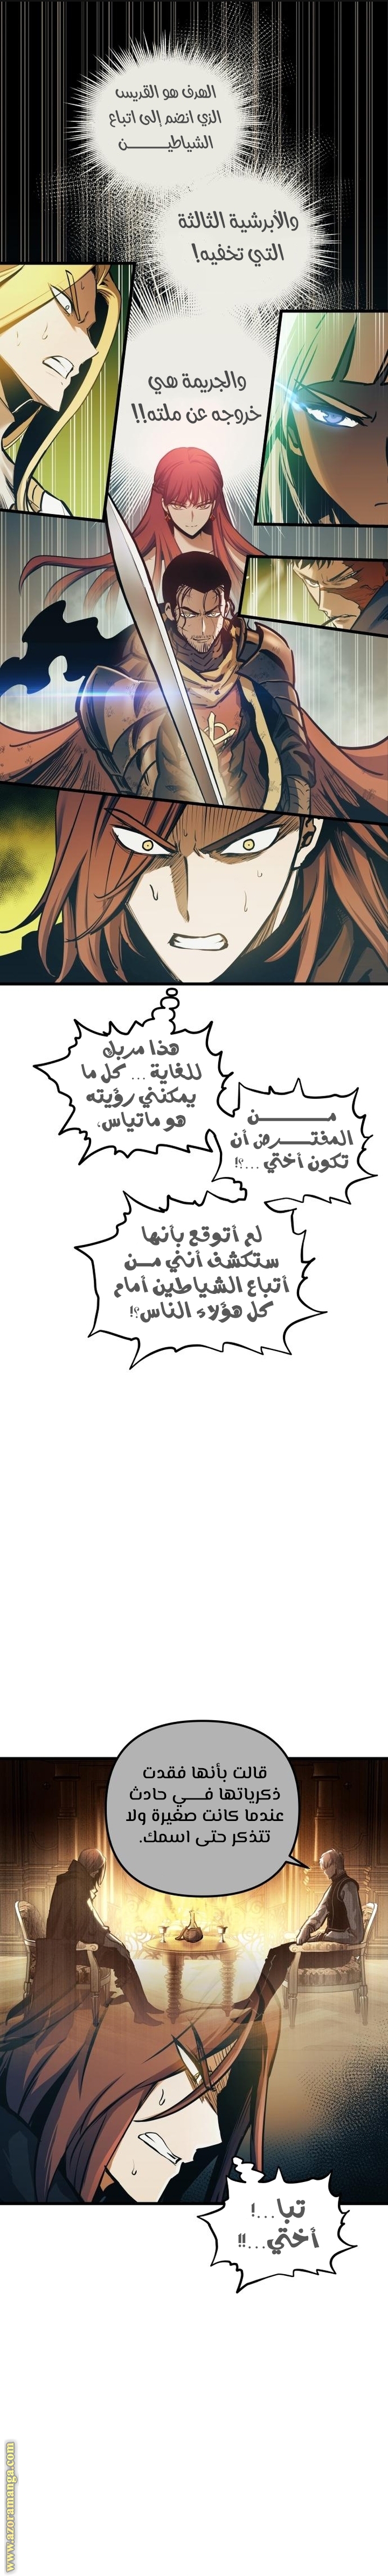 الهدف هو القديس
الذي انضم إلى اتباع
الشياطيـــــــن
والأبرشية الثالثة
التي تخفيه!
والجريمة هي
خروجه عن ملته!!
هذا مربك
للغاية... كل ما
يمكنني رؤيته
هو ماتياس،
مـــــــــن
المفتـــرض أن
تكون أختي ...؟!
لم أتوقع بأنها
ستكشف أنني مــن
أتباع الشياطين أمام
كل هؤلاء الناس؟!
قالت بأنها فقدت
ذكرياتها فـــي حادث
عندما كانت صغيرة ولا
تتذكر حتى اسمك.
تبا...!
أختي...!!
www.azoramanga.com